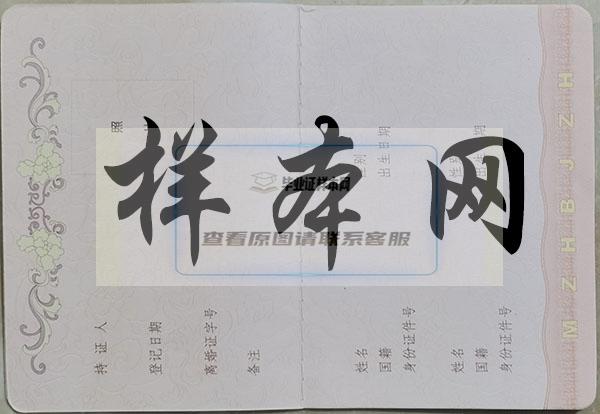 样本网
毕业证样本网
查看原图请联系客服
照
持证人
登记日期
离婚证字号
备注
性别
出生日期
姓名
国籍
身份证件号
性别
出生日期
姓名
国籍
身份证件号
MZHBJZH